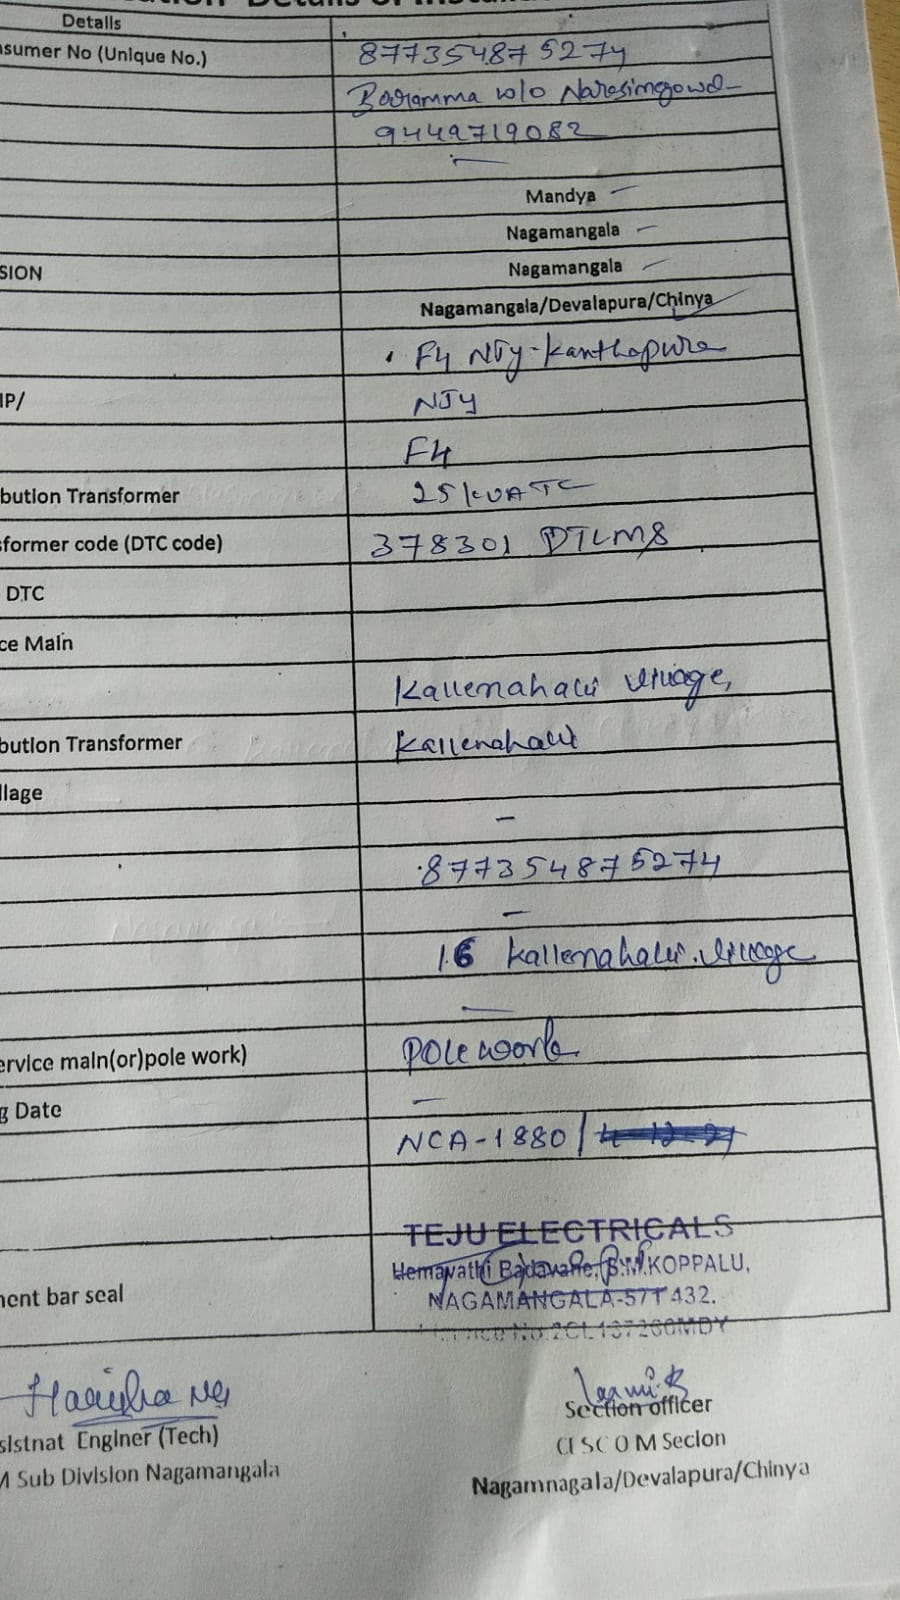 Details
nsumer No (Unique No.) 877354875274
Boramma w/o Narasimegowd
9449719082
Mandya
Nagamangala
SION Nagamangala
Nagamangala/Devalapura/Chinya
F4 NJy-Kanthapura
IP/ NJY
F4
bution Transformer 25 KVA TC
sformer code (DTC code) 378301 DTLMS
DTC
ce Main
Kallenahalli village,
bution Transformer Kallenahalli
llage
-
877354875274
-
1.6 Kallenahalli village
ervice main(or)pole work) pole work
g Date -
NCA-1880/
TEJU ELECTRICALS
Hemavathi Badavane, B.M.KOPPALU,
nent bar seal NAGAMANGALA-571 432.
Harisha
sistnat Enginer (Tech)
M Sub Division Nagamangala
Section officer
CESCOM Secion
Nagamnagala/Devalapura/Chinya